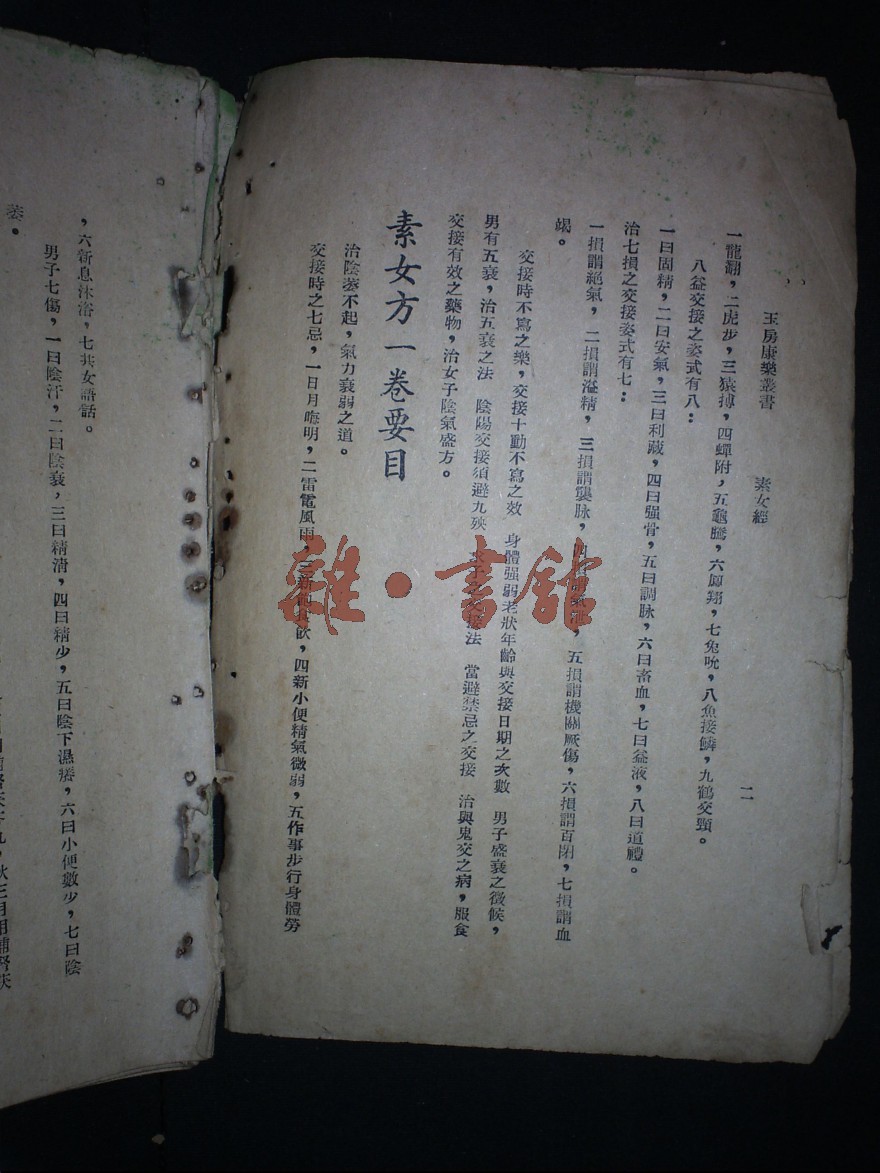 玉房康樂叢書　素女經　二
一龍翻，二虎步，三猿搏，四蟬附，五龜騰，六鳳翔，七兔吮，八魚接鱗，九鶴交頸。
八益交接之姿式有八：
一曰固精，二曰安氣，三曰利藏，四曰强骨，五曰調脉，六曰畜血，七曰益液，八曰道體。
治七損之交接姿式有七：
一損謂絕氣，二損謂溢精，三損謂奪脉，四損謂氣泄，五損謂機關厥傷，六損謂百閉，七損謂血
竭。
交接時不寫之樂，交接十動不寫之效　身體强弱老狀年齡與交接日期之次數　男子盛衰之徵候，
男有五衰，治五衰之法　陰陽交接須避九殃　交接法　當避禁忌之交接　治與鬼交之病，服食
交接有效之藥物，治女子陰氣盛方。
素女方一卷要目
治陰萎不起，氣力衰弱之道。
交接時之七忌，一日月晦明，二雷電風雨，三新飽食飲，四新小便精氣微弱，五作事步行身體勞
，六新息沐浴，七共女語話。
男子七傷，一曰陰汗，二曰陰衰，三曰精清，四曰精少，五曰陰下濕癢，六曰小便數少，七曰陰
萎。
秋三月用補腎茯
雜·書館